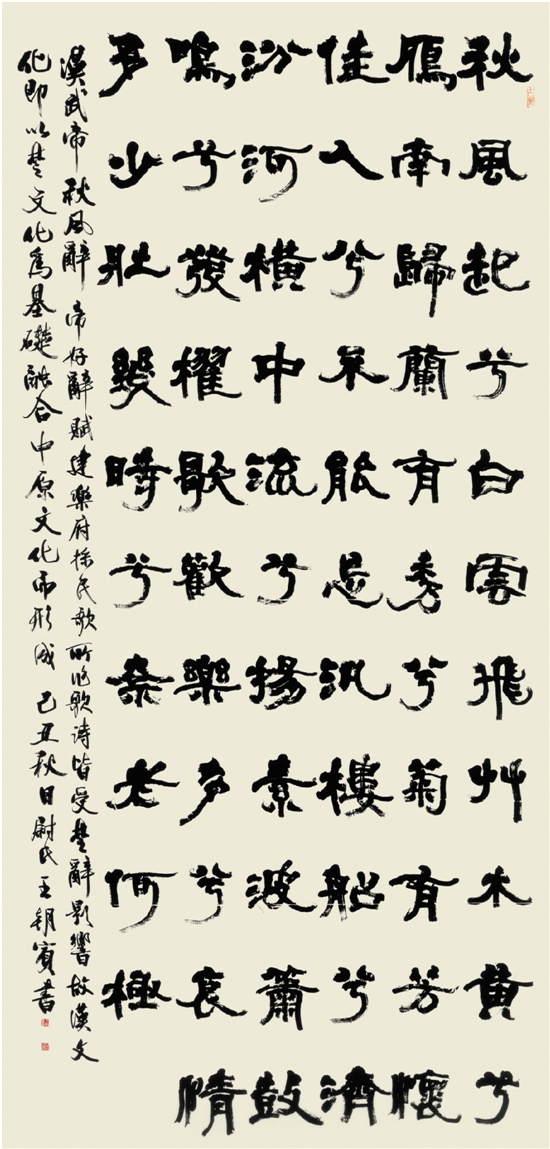 秋風起兮白雲飛艸木黄兮
鴈南歸蘭有秀兮菊有芳懷
佳人兮不能忘汎樓船兮濟
汾河橫中流兮揚素波簫鼓
鳴兮發櫂歌歡樂多兮哀情
多少壯幾時兮柰老何極
漢武帝秋风辭 帝好辭賦建樂府採民歌所作歌诗皆受楚辭影響故漢文
化即以楚文化爲基礎融合中原文化而形成 己丑秋日尉氏王朝賓書